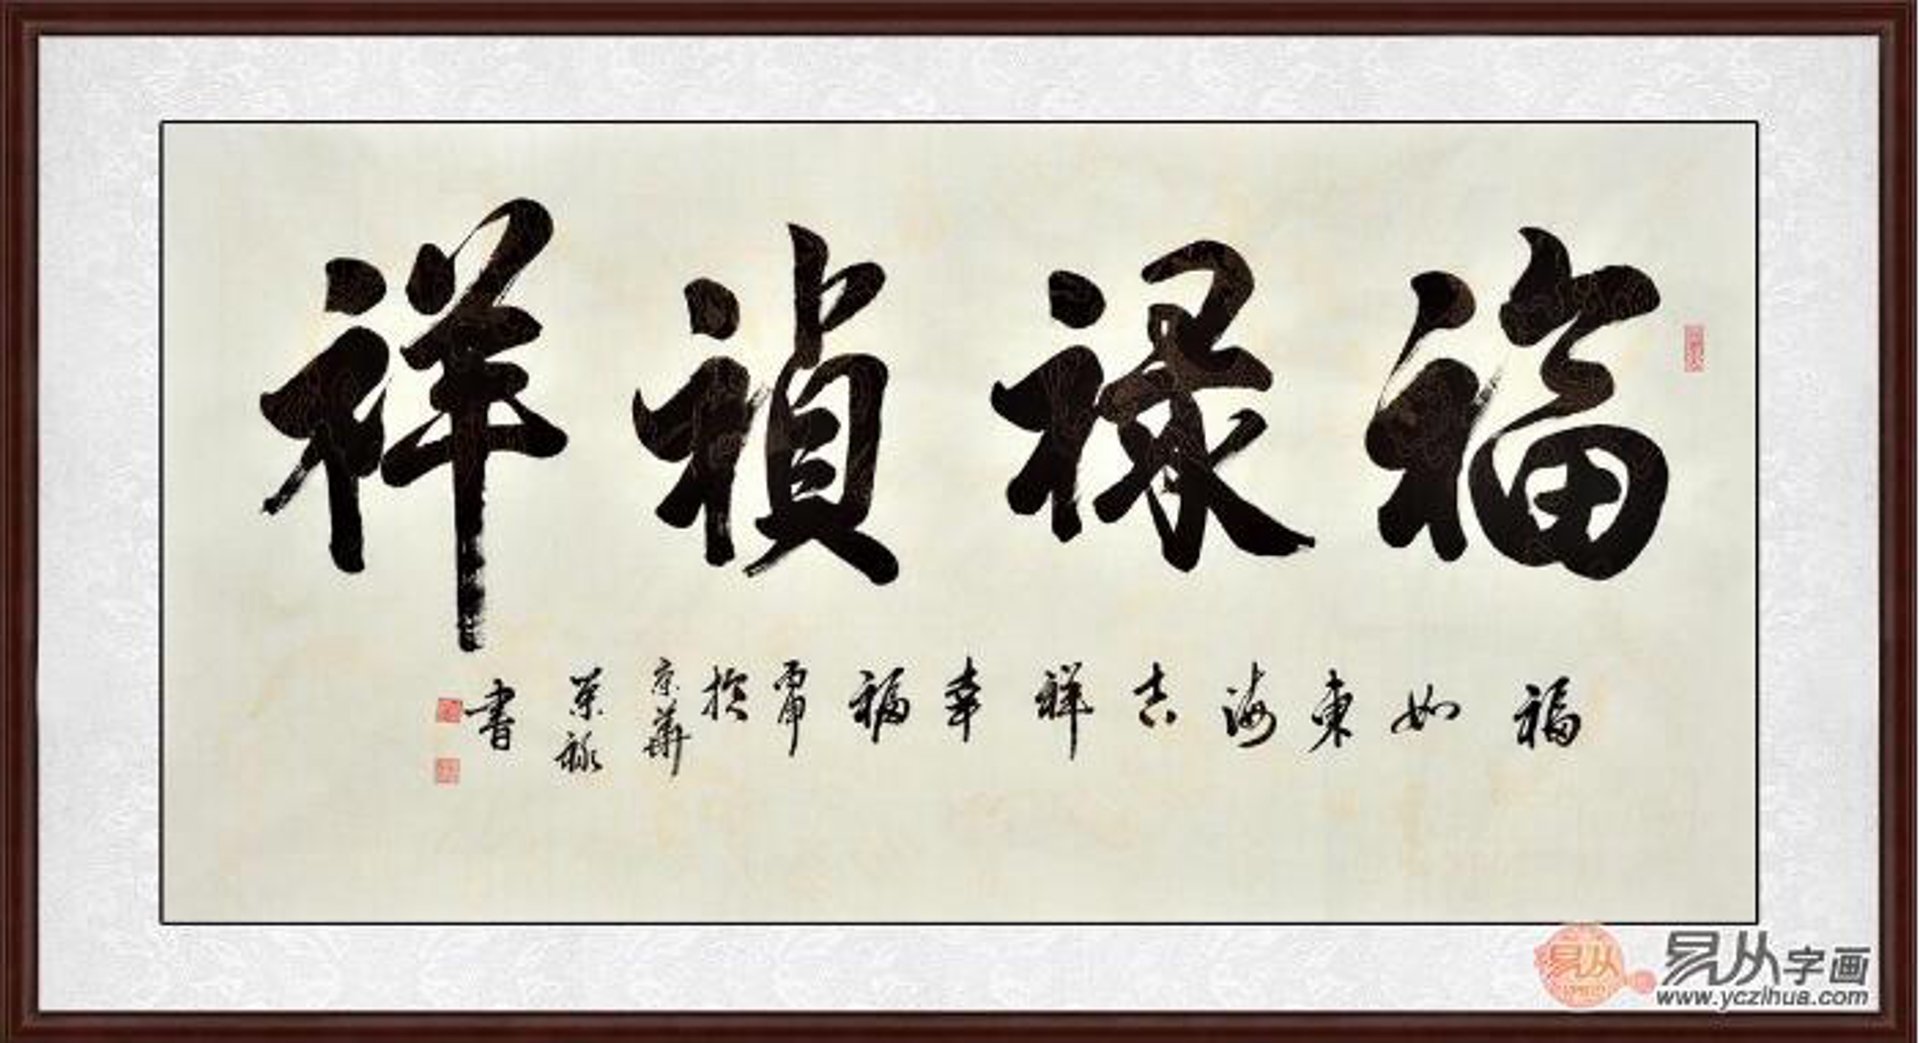 福禄祯祥
福如東海吉祥幸福
京華
榮禄
書
易从
易从字画
www.yczihua.com